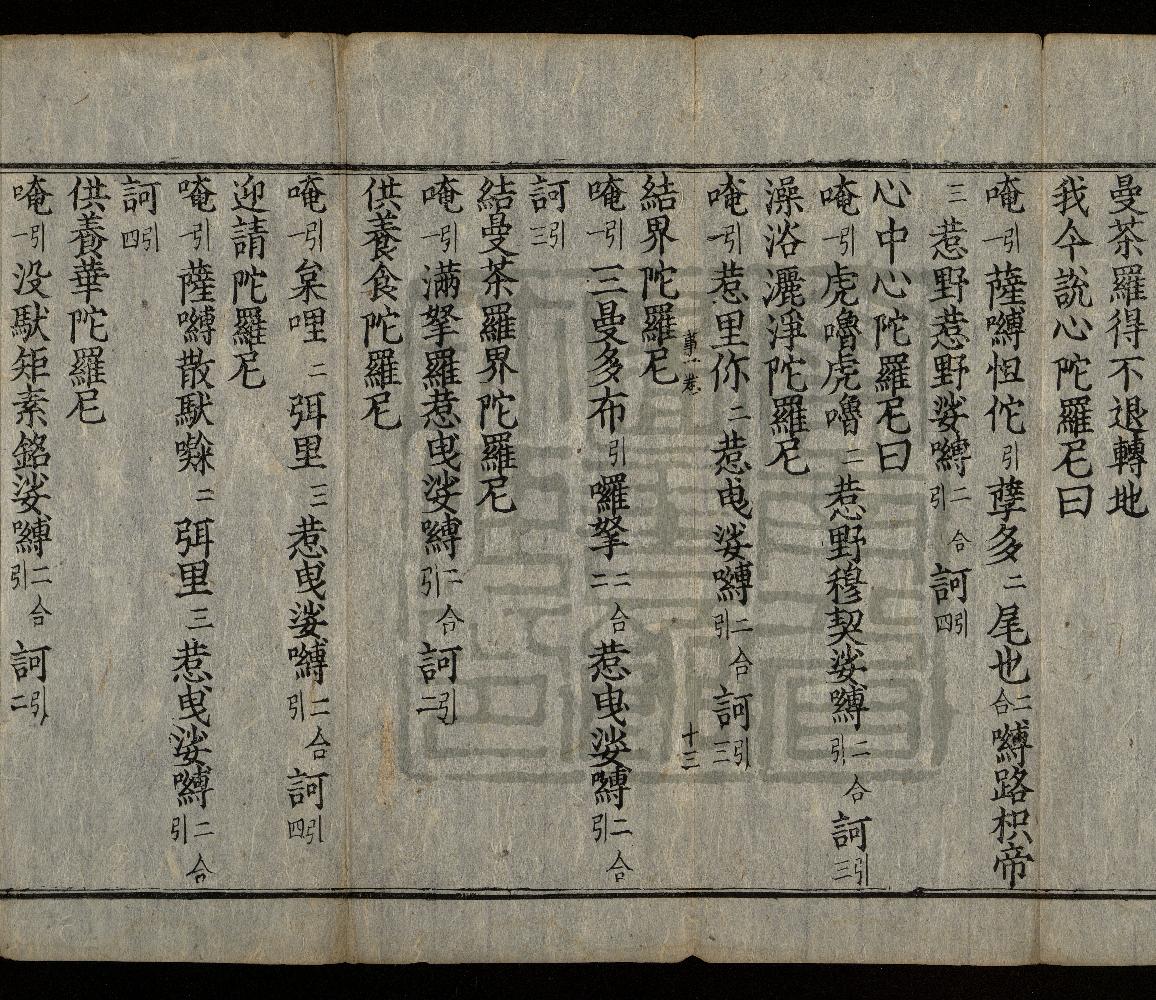 曼茶羅得不退轉地
我今說心陀羅尼曰
唵一引薩嚩怛佗引孽多二尾也二合嚩路枳帝
三惹野惹野娑嚩二合引訶引四
心中心陀羅尼曰
唵一引虎嚕虎嚕二惹野穆契娑嚩二合引訶引三
澡浴灑淨陀羅尼
唵一引惹里你二惹曳娑嚩二合引訶引三
第一卷 十三
結界陀羅尼
唵一引三曼多布引囉拏二二合惹曳娑嚩二合引
訶引三
結曼茶羅界陀羅尼
唵一引滿拏羅惹曳娑嚩二合引訶引二
供養食陀羅尼
唵一引枲哩二弭里三惹曳娑嚩二合引訶引四
迎請陀羅尼
唵一引薩嚩散馱二弭里三惹曳娑嚩二合引
訶引四
供養華陀羅尼
唵一引没馱矩素銘娑嚩二合引訶引二